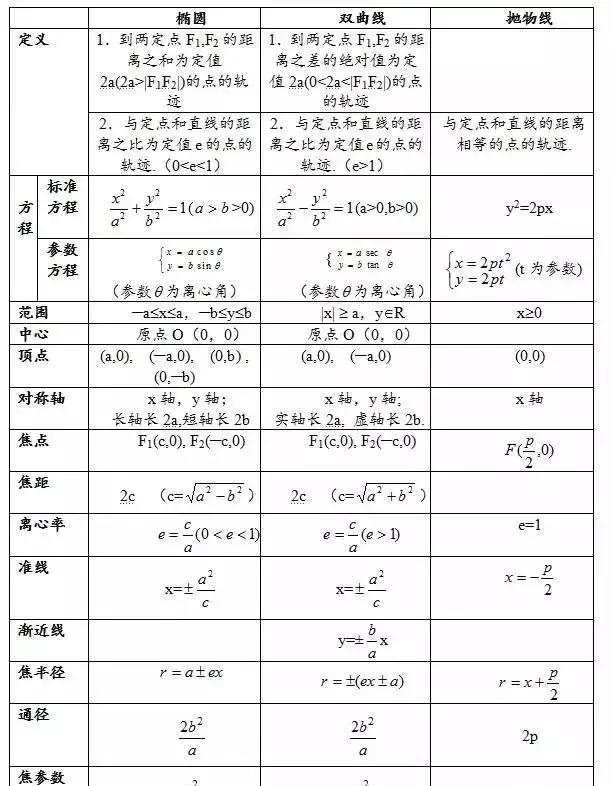 椭圆 双曲线 抛物线
定义 1. 到两定点 F₁,F₂ 的距离之和为定值 2a(2a>|F₁F₂|)的点的轨迹 1. 到两定点 F₁,F₂ 的距离之差的绝对值为定值 2a(0<2a<|F₁F₂|)的点的轨迹
2. 与定点和直线的距离之比为定值 e 的点的轨迹.（0<e<1） 2. 与定点和直线的距离之比为定值 e 的点的轨迹.（e>1） 与定点和直线的距离相等的点的轨迹.
方程 标准方程 x²/a² + y²/b² = 1(a > b >0) x²/a² − y²/b² = 1(a>0,b>0) y²=2px
参数方程 { x = a cos θ y = b sin θ （参数θ为离心角） { x = a sec θ y = b tan θ （参数θ为离心角） { x = 2pt² y = 2pt (t 为参数)
范围 ─a≤x≤a，─b≤y≤b |x| ≥ a，y∈R x≥0
中心 原点 O（0，0） 原点 O（0，0）
顶点 (a,0), (─a,0), (0,b) , (0,─b) (a,0), (─a,0) (0,0)
对称轴 x 轴，y 轴； 长轴长 2a,短轴长 2b x 轴，y 轴; 实轴长 2a, 虚轴长 2b. x 轴
焦点 F₁(c,0), F₂(─c,0) F₁(c,0), F₂(─c,0) F(p/2,0)
焦距 2c （c=√(a² − b²)） 2c （c=√(a² + b²)）
离心率 e = c/a (0 < e < 1) e = c/a (e > 1) e=1
准线 x=± a²/c x=± a²/c x = − p/2
渐近线 y=± b/a x
焦半径 r = a ± ex r = ±(ex ± a) r = x + p/2
通径 2b²/a 2b²/a 2p
焦参数